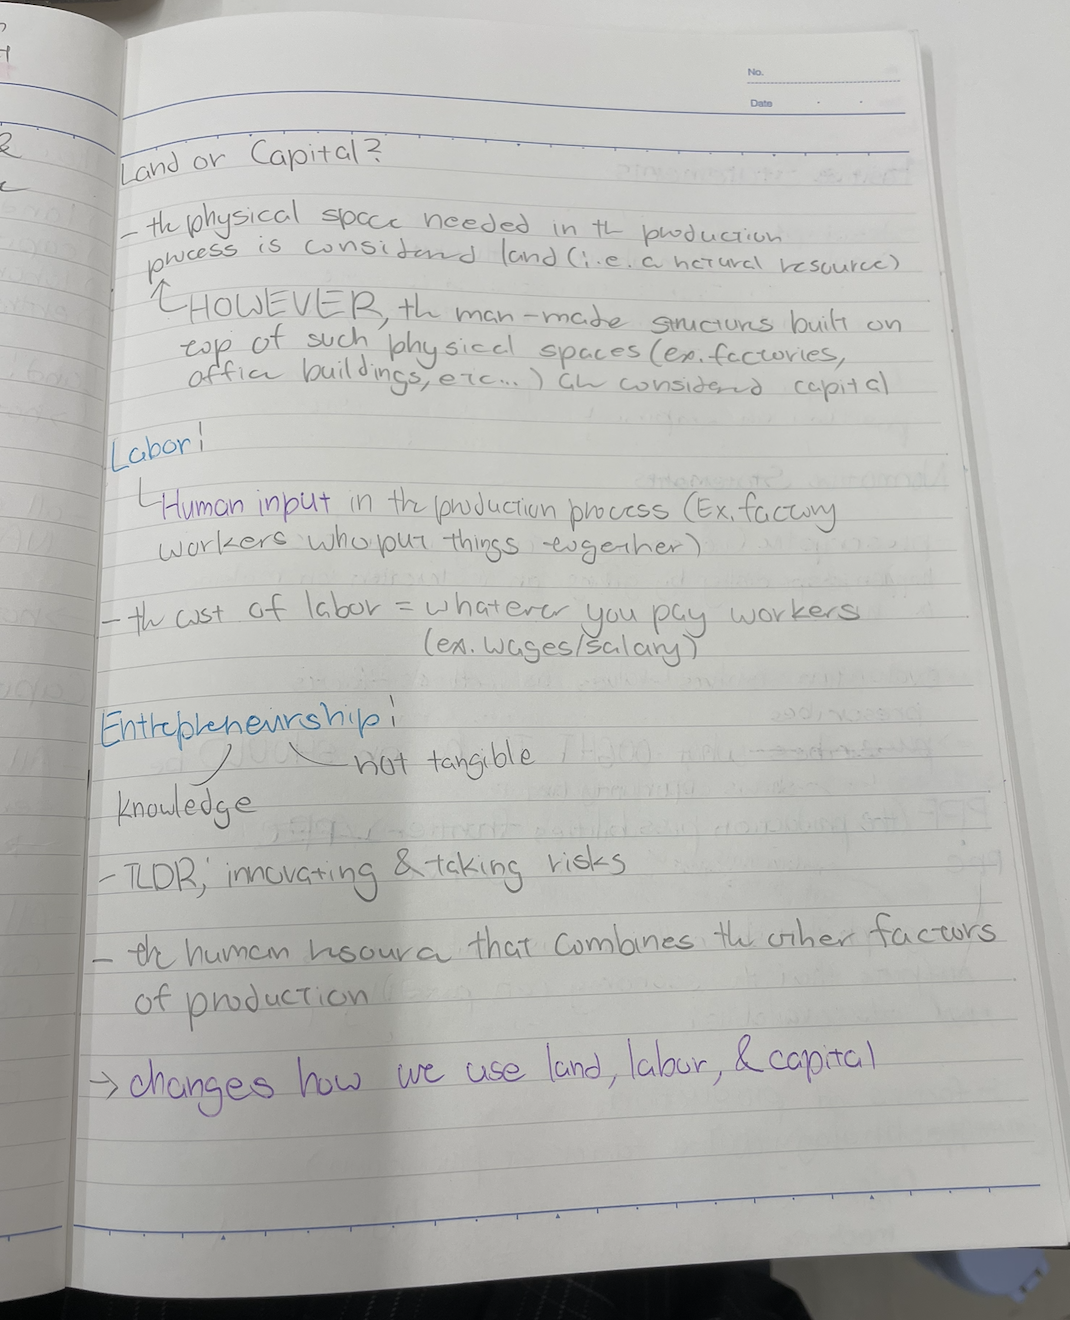 No.
Date
Land or Capital?
- the physical space needed in the production
process is considered land (i.e. a natural resource)
HOWEVER, the man-made structures built on
top of such physical spaces (ex. factories,
office buildings, etc...) are considered capital
Labor!
Human input in the production process (Ex. factory
workers who put things together)
- the cost of labor = whatever you pay workers
(ex. wages/salary)
Entrepreneurship!
not tangible
knowledge
- TLDR; innovating & taking risks
- the human resource that combines the other factors
of production
→ changes how we use land, labor, & capital